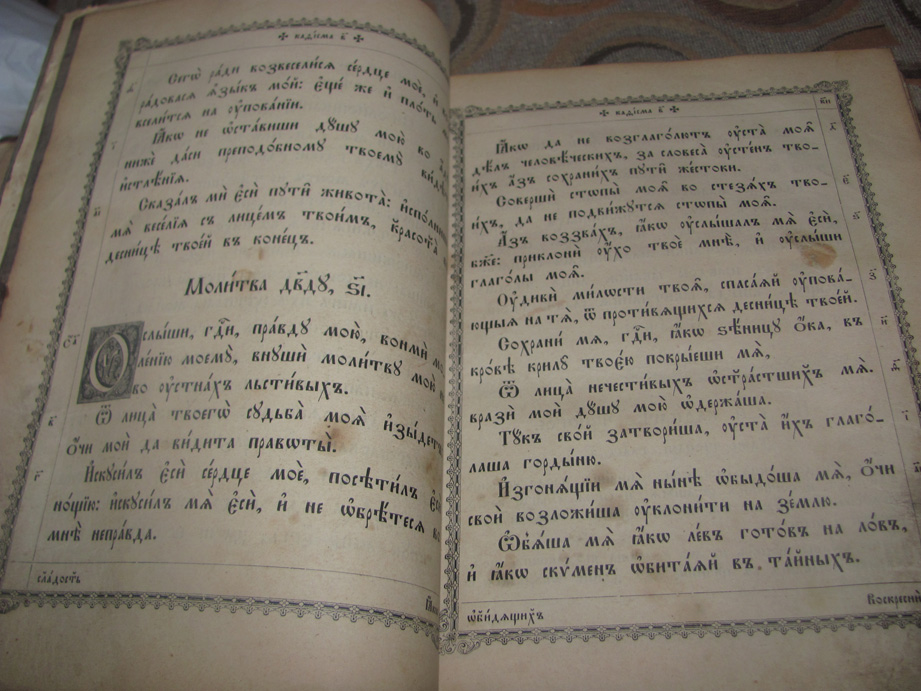 ✠ каѳісма в҃ ✠
Сегѡ̀ ра́ди возвесели́сѧ се́рдце моѐ, и҆
ра́довасѧ ѧ҆зы́къ мо́й: є҆ще́ же и҆ пло́ть
всели́тсѧ на ᲂу҆пова́нїи.
Ꙗ҆́кѡ не ѡ҆ста́виши дꙋ́шꙋ мою̀ во
нижѐ да́си преподо́бномꙋ твоемꙋ̀ ви́дѣ
и҆стлѣ́нїѧ.
Сказа́лъ мѝ є҆сѝ пꙋти̑ живота̀: и҆спо́лни
мѧ̀ весе́лїѧ съ лице́мъ твои́мъ, красота̀
десни́цѣ твое́й въ коне́цъ.
Моли́тва дв҃дꙋ, ѕ҃і.
Оу҆слы́ши, гдⷭ҇и, пра́вдꙋ мою̀, вонмѝ
ле́нїю моемꙋ̀, внꙋшѝ моли́твꙋ мою̀
во ᲂу҆стна́хъ льсти́выхъ.
Ѿ лица̀ твоегѡ̀ сꙋдьба̀ моѧ̀ и҆зы́детъ
ѻ҆́чи моѝ да ви́дита правѡты̑.
И҆скꙋси́лъ є҆сѝ се́рдце моѐ, посѣти́лъ є҆сѝ
но́щїю: и҆скꙋси́лъ мѧ̀ є҆сѝ, и҆ не ѡ҆брѣ́тесѧ во
мнѣ̀ непра́вда.
сла́дость
✠ каѳісма в҃ ✠
Ꙗ҆́кѡ да не возглаго́лютъ ᲂу҆ста̀ моѧ̑
дѣ́лъ человѣ́ческихъ, за словеса̀ ᲂу҆сте́нъ тво-
и́хъ а҆́зъ сохрани́хъ пꙋти̑ же́стоки.
Совершѝ стѡпы̀ моѧ̑ во стезѧ́хъ тво-
и́хъ, да не подви́жꙋтсѧ стѡпы̀ моѧ̑.
А҆́зъ воззва́хъ, ꙗ҆́кѡ ᲂу҆слы́шалъ мѧ̀ є҆сѝ,
бж҃е: приклонѝ ᲂу҆́хо твоѐ мнѣ̀, и҆ ᲂу҆слы́ши
глаго́лы моѧ̑.
Оу҆дивѝ ми́лѡсти твоѧ̑, спаса́ѧй ᲂу҆пова́-
ющыѧ на тѧ̀, ѿ проти́вѧщихсѧ десни́цѣ твое́й.
Сохрани́ мѧ, гдⷭ҇и, ꙗ҆́кѡ ѕѣ́ницꙋ ѻ҆́ка, въ
кро́вѣ крилꙋ̀ твоє́ю покры́еши мѧ̀,
Ѿ лица̀ нечести́выхъ ѡ҆стра́стшихъ мѧ̀.
вразѝ моѝ дꙋ́шꙋ мою̀ ѡ҆держа́ша.
Тꙋ́къ сво́й затвори́ша, ᲂу҆ста̀ и҆́хъ глаго́-
лаша горды́ню.
И҆згонѧ́щїи мѧ̀ ны́нѣ ѡ҆быдо́ша мѧ̀, ѻ҆́чи
своѝ возложи́ша ᲂу҆клони́ти на зе́млю.
Ѡ҆б̾ѧ́ша мѧ̀ ꙗ҆́кѡ ле́въ гото́въ на ло́въ,
и҆ ꙗ҆́кѡ скѵ́менъ ѡ҆бита́ѧй въ та́йныхъ.
ѡ҆би́дѧщихъ
Воскреснѝ